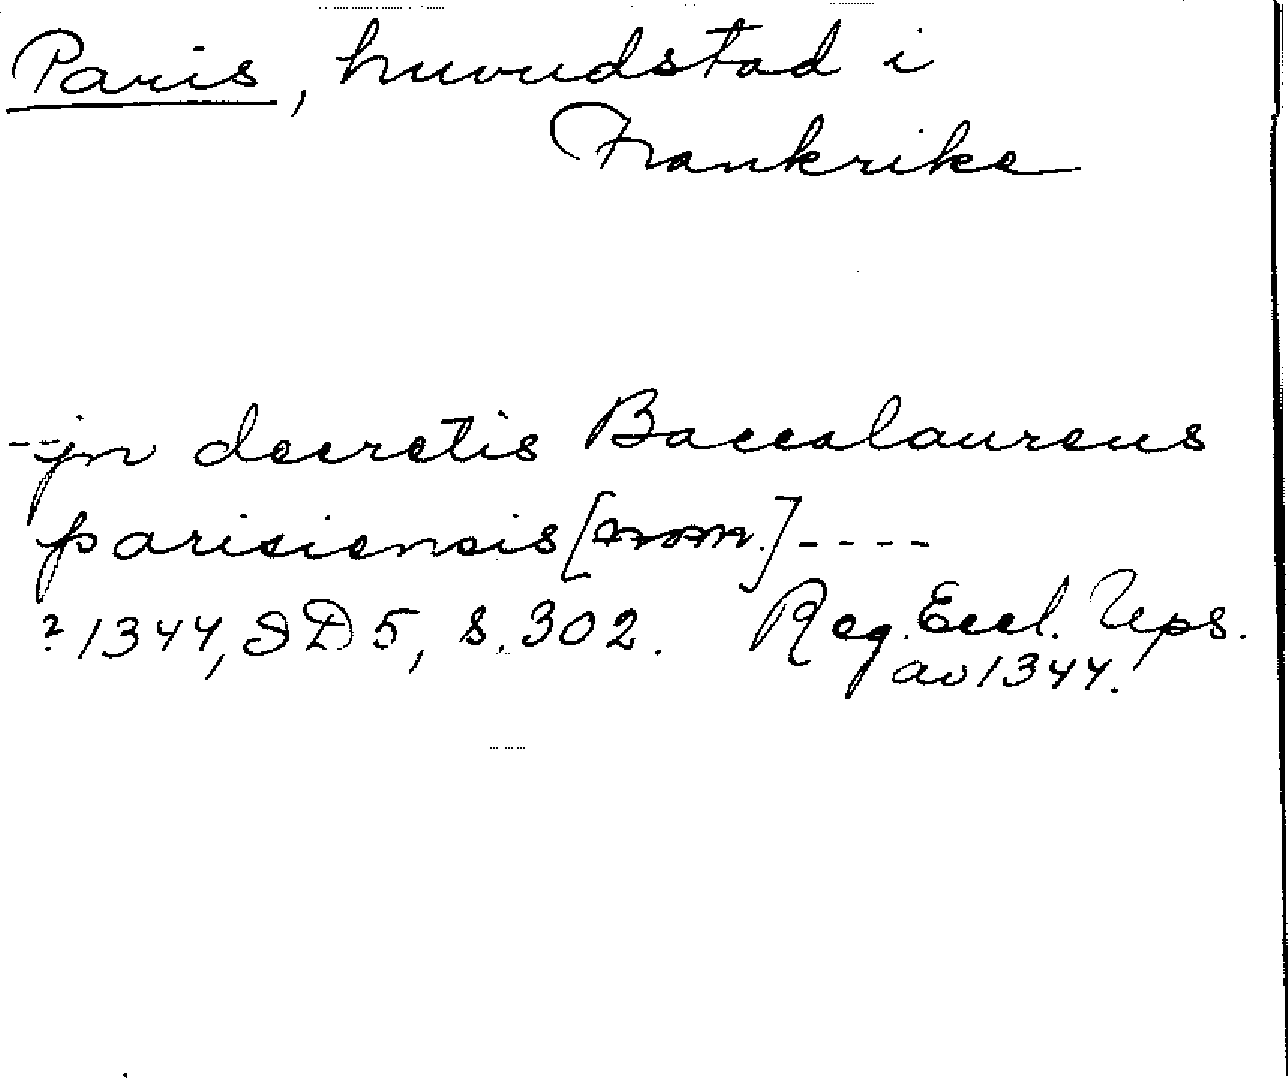 Paris, huvudstad i
Frankrike
--jn decretis Baccalaureus
parisiensis [nom.] ----
? 1344, SD 5, s. 302. Reg. Eccl. Ups.
av 1344.